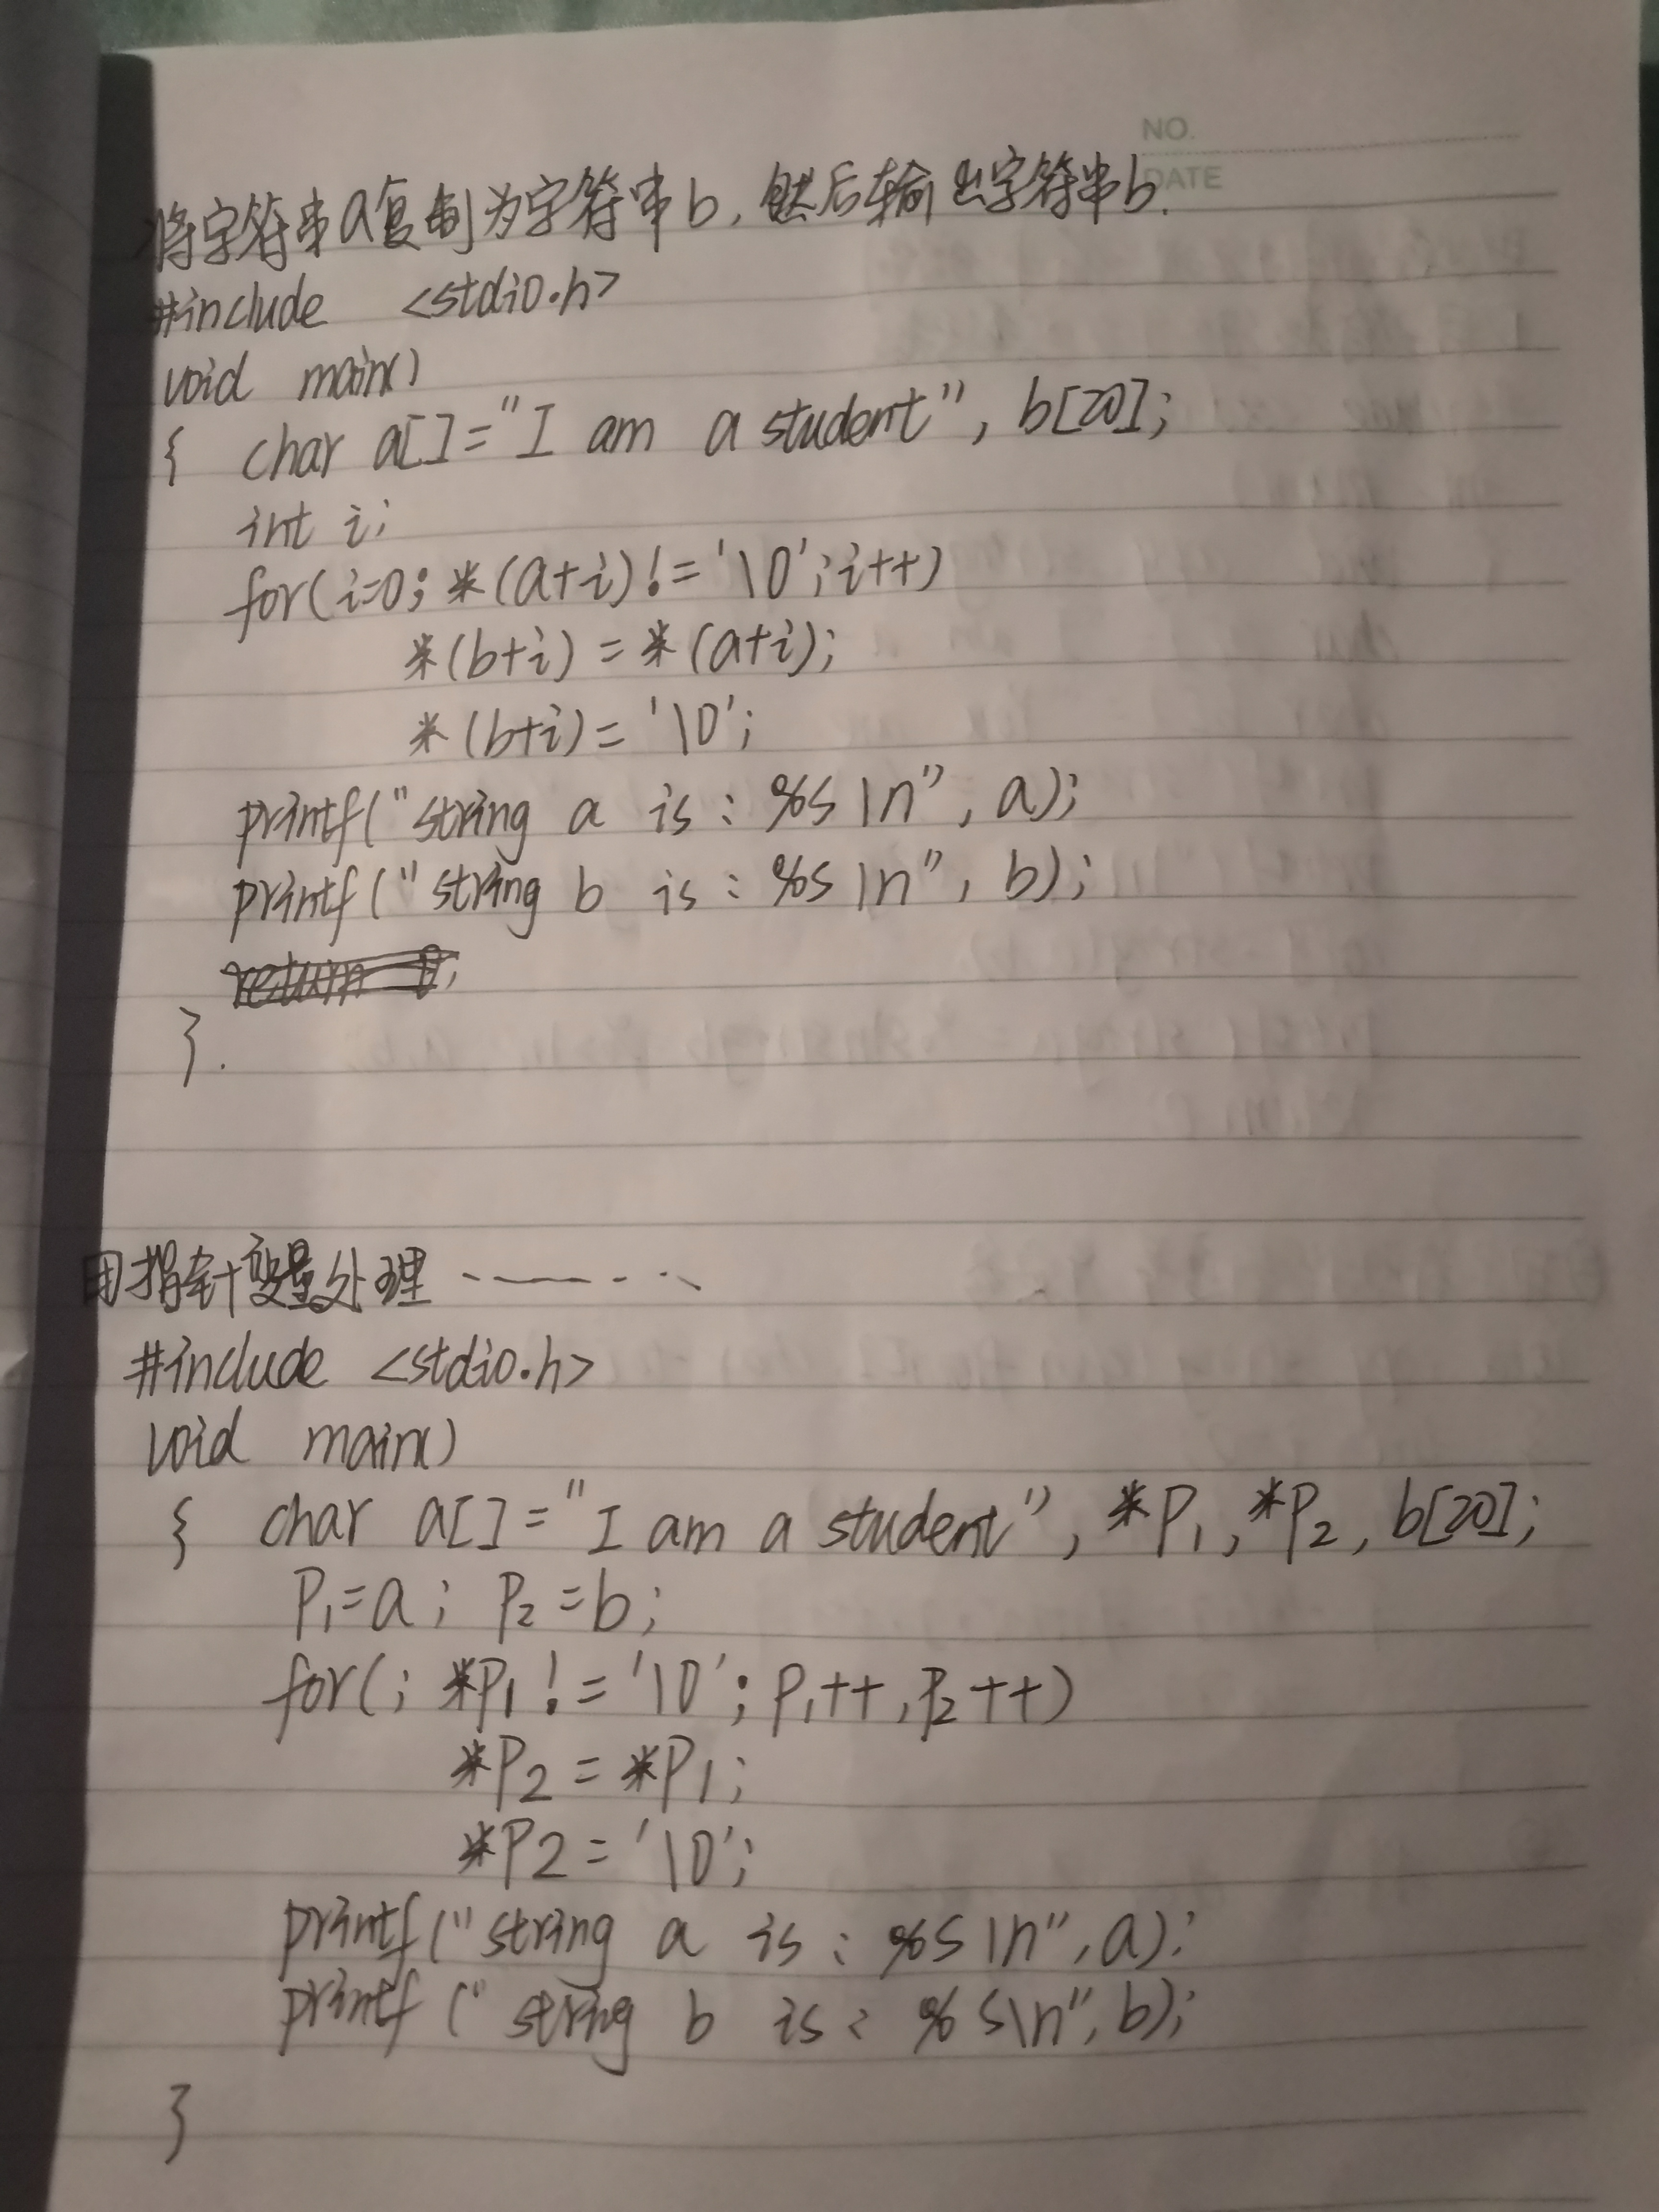 NO.
DATE
将字符串a复制为字符串b,然后输出字符串b.
#include <stdio.h>
void main()
{ char a[]="I am a student", b[20];
int i;
for(i=0; *(a+i)!='\0';i++)
*(b+i)=*(a+i);
*(b+i)='\0';
printf("string a is: %s\n", a);
printf("string b is: %s\n", b);
return 0;
}.
用指针变量处理 ------
#include <stdio.h>
void main()
{ char a[]="I am a student", *P1,*P2, b[20];
P1=a; P2=b;
for(; *P1!='\0'; P1++,P2++)
*P2=*P1;
*P2='\0';
printf("string a is: %s\n",a);
printf("string b is: %s\n",b);
}